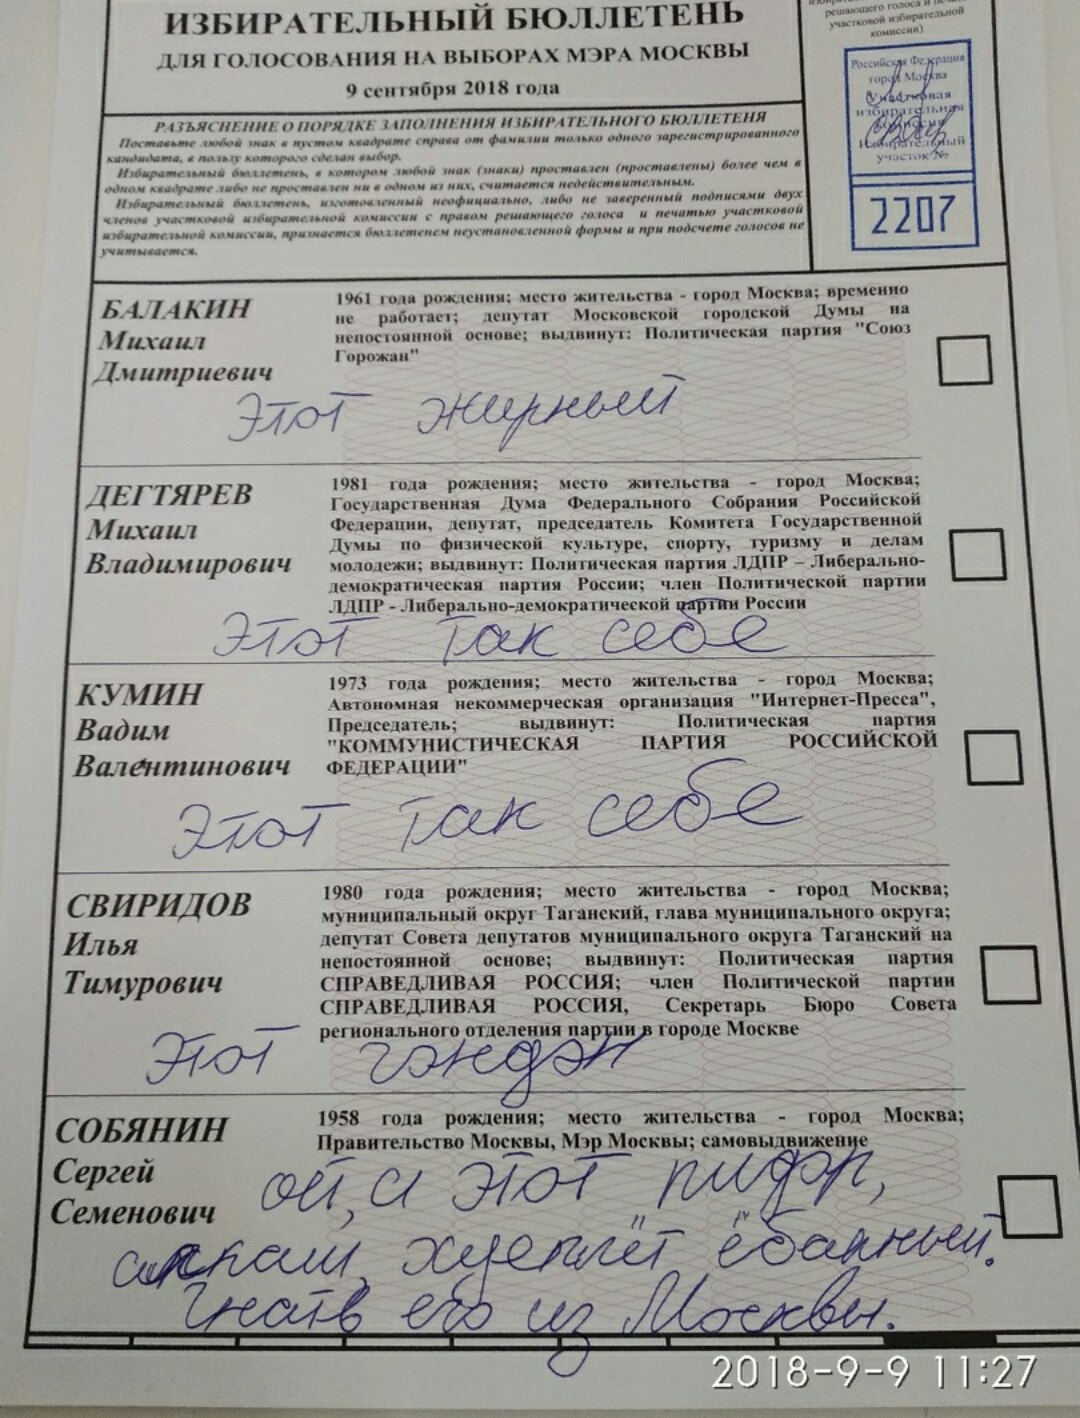 ИЗБИРАТЕЛЬНЫЙ БЮЛЛЕТЕНЬ
ДЛЯ ГОЛОСОВАНИЯ НА ВЫБОРАХ МЭРА МОСКВЫ
9 сентября 2018 года
решающего голоса и
участковой избирательной
комиссии)
Российская Федерация
город Москва
Участковая
избирательная
комиссия
Избирательный
участок №
2207
РАЗЪЯСНЕНИЕ О ПОРЯДКЕ ЗАПОЛНЕНИЯ ИЗБИРАТЕЛЬНОГО БЮЛЛЕТЕНЯ
Поставьте любой знак в пустом квадрате справа от фамилии только одного зарегистрированного
кандидата, в пользу которого сделан выбор.
Избирательный бюллетень, в котором любой знак (знаки) проставлен (проставлены) более чем в
одном квадрате либо не проставлен ни в одном из них, считается недействительным.
Избирательный бюллетень, изготовленный неофициально, либо не заверенный подписями двух
членов участковой избирательной комиссии с правом решающего голоса и печатью участковой
избирательной комиссии, признается бюллетенем неустановленной формы и при подсчете голосов не
учитывается.
БАЛАКИН
Михаил
Дмитриевич
1961 года рождения; место жительства - город Москва; временно
не работает; депутат Московской городской Думы на
непостоянной основе; выдвинут: Политическая партия "Союз
Горожан"
Этот жирный
ДЕГТЯРЕВ
Михаил
Владимирович
1981 года рождения; место жительства - город Москва;
Государственная Дума Федерального Собрания Российской
Федерации, депутат, председатель Комитета Государственной
Думы по физической культуре, спорту, туризму и делам
молодежи; выдвинут: Политическая партия ЛДПР – Либерально-
демократическая партия России; член Политической партии
ЛДПР - Либерально-демократической партии России
Этот так себе
КУМИН
Вадим
Валентинович
1973 года рождения; место жительства - город Москва;
Автономная некоммерческая организация "Интернет-Пресса",
Председатель; выдвинут: Политическая партия
"КОММУНИСТИЧЕСКАЯ ПАРТИЯ РОССИЙСКОЙ
ФЕДЕРАЦИИ"
Этот так себе
СВИРИДОВ
Илья
Тимурович
1980 года рождения; место жительства - город Москва;
муниципальный округ Таганский, глава муниципального округа;
депутат Совета депутатов муниципального округа Таганский на
непостоянной основе; выдвинут: Политическая партия
СПРАВЕДЛИВАЯ РОССИЯ; член Политической партии
СПРАВЕДЛИВАЯ РОССИЯ, Секретарь Бюро Совета
регионального отделения партии в городе Москве
Этот гэндэн
СОБЯНИН
Сергей
Семенович
1958 года рождения; место жительства - город Москва;
Правительство Москвы, Мэр Москвы; самовыдвижение
ой, а этот пидор,
алкаш, хуеплёт ёбанный.
Гнать его из Москвы.
2018-9-9 11:27